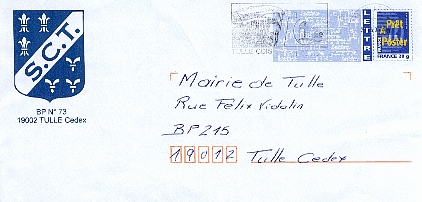 S.C.T.
BP N° 73
19002 TULLE Cedex
LETTRE
Prêt
à
Poster
FRANCE 20 g
Mairie de Tulle
Rue Félix Vidalin
BP215
19012 Tulle Cedex